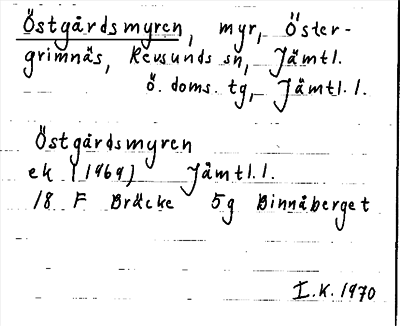 Östgårdsmyren, myr, Öster-
grimnäs, Revsunds sn, Jämtl.
Ö. doms. tg, Jämtl. l.
Östgårdsmyren
ek (1969) Jämtl. l.
18 F Bräcke 5g Binnåberget
I.K. 1970